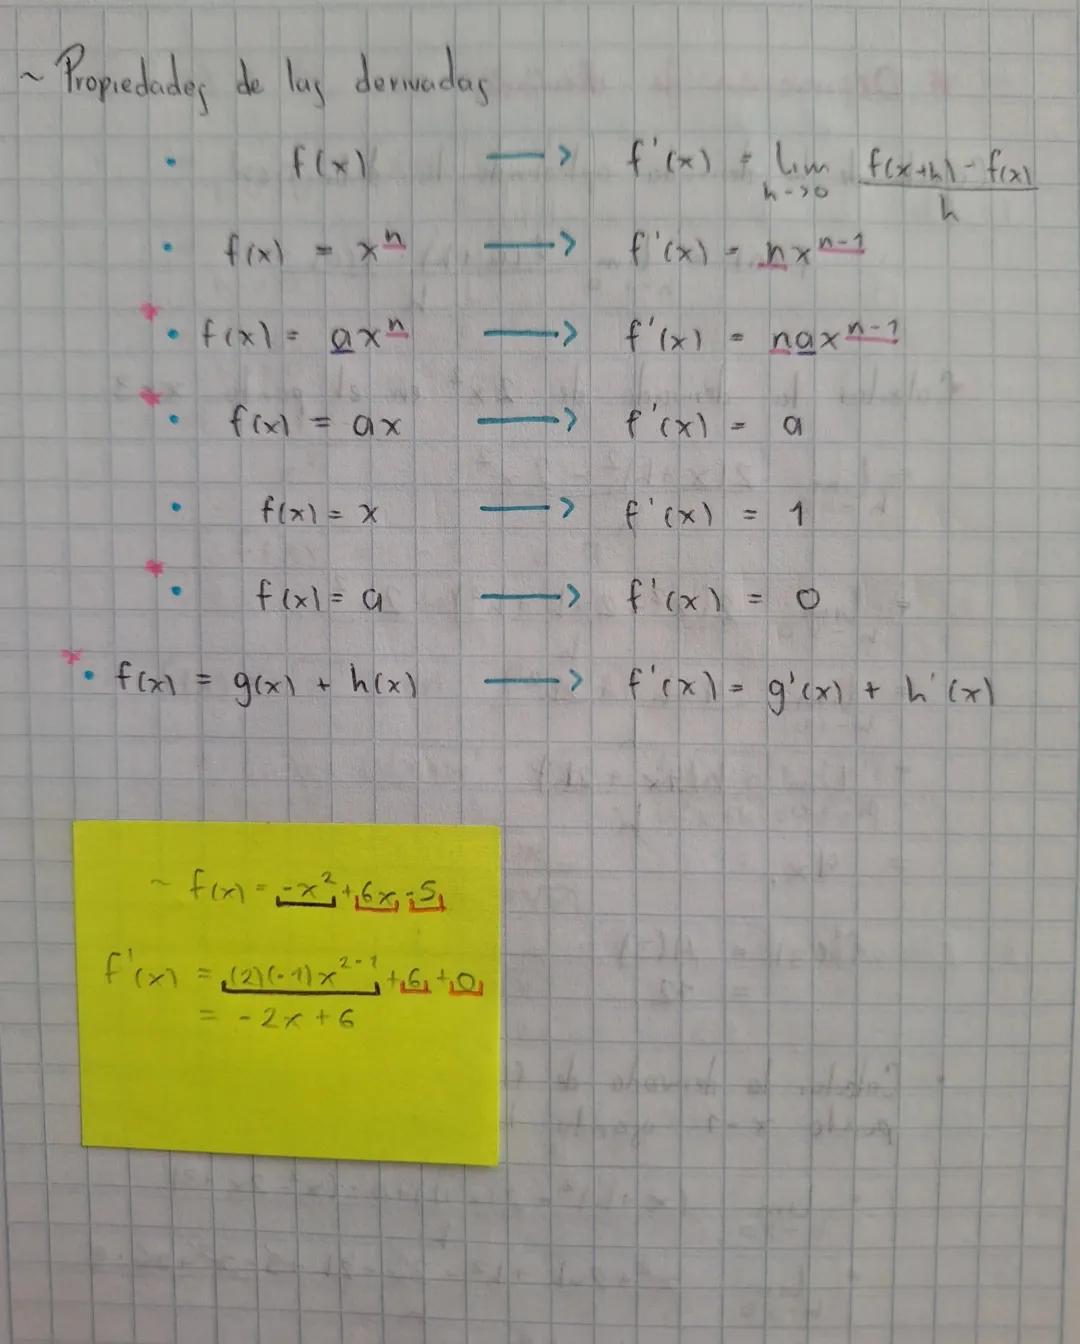 ~ Propiedades de las derivadas
• f(x) → f'(x) = lim h->0 f(x+h) - f(x) / h
• f(x) = x^n → f'(x) = nx^n-1
* • f(x) = ax^n → f'(x) = nax^n-1
* • f(x) = ax → f'(x) = a
• f(x) = x → f'(x) = 1
* • f(x) = a → f'(x) = 0
* • f(x) = g(x) + h(x) → f'(x) = g'(x) + h'(x)
~ f(x) = -x^2 + 6x - 5
f'(x) = (2)(-1)x^2-1 + 6 + 0
= -2x + 6